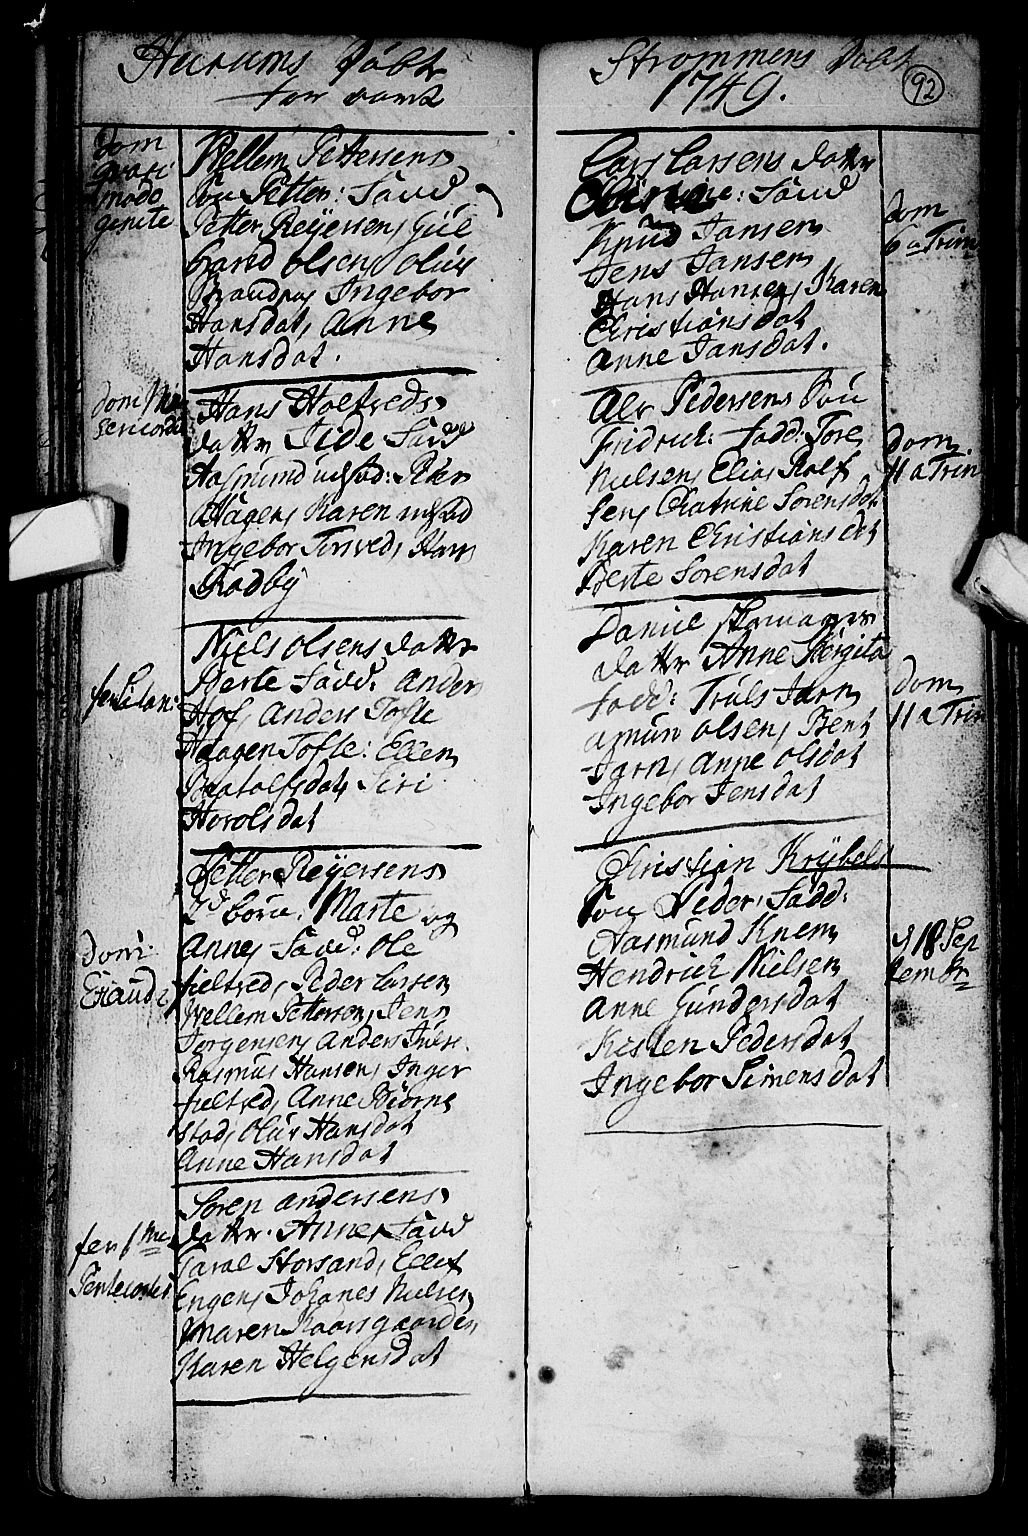 Hurums Døbt
for
dom
qvasi
mode
genite
Wellem Pettersens
Søn Petter: Fadd
Petter Reÿersen, Gul
brand Olsen, Oluf
Ingebor
Hansdat, Anne
Hansdat.
dom Mi
sericordi
Hans Holtveds
datter Fadd
Aasmund Peder
Hagen, Karen
Ingebor Hans
Rødby
Niels Olsens datter
Berte Fadd: Anders
Hof, Anders Tofte
Haagen Tofte: Ellen
Siri
Horolsdat
dom
Exaudi
Petter Reÿersens
2d børn. Marte og
Anne, Fadd: Ole
fieltved, Peder Larsen
Wellem Petterson, Jens
Jørgensen, Anders
Rasmus Hansen, Inger
fieltved, Anne Biørne
stad, Oluf Hansdat
Anne Hansdat
fer 1 me
Pentecostes
Søren Andersens
datter. Anne, Fadd
Carol Storsand, Ellef
Engen, Johanes Nielsen
Maren Kaarsgaarden
Karen Helgensdat
Strømmens Døbt
1749.
92
Lars Larsens datter
Fadd
Knud Jansen
Jens Jansen
Hans Hansen, Karen
Christiansdat
Anne Jansdat.
dom
6 a Trin
Alv Pedersens Søn
Fridrich: Fadd: Tore
Nielsen, Elias Rolf
sen, Chatrine Sorensdat
Karen Christiansdat
Berte Sorensdat
dom
11 a Trin
Daniel
datter Anne Børgita
fadd: Truls Jarn
Amun Olsen, Bent
Jarn, Anne Olsdat
Ingebor Jensdat
dom
11 a Trin
Christian Krÿbels
Søn Peder, Fadd:
Aasmund Knem
Hendrich Nielsen
Anne Gundersdat
Kirsten Pedersdat
Ingebor Simensdat
d 18 Sep
tembr